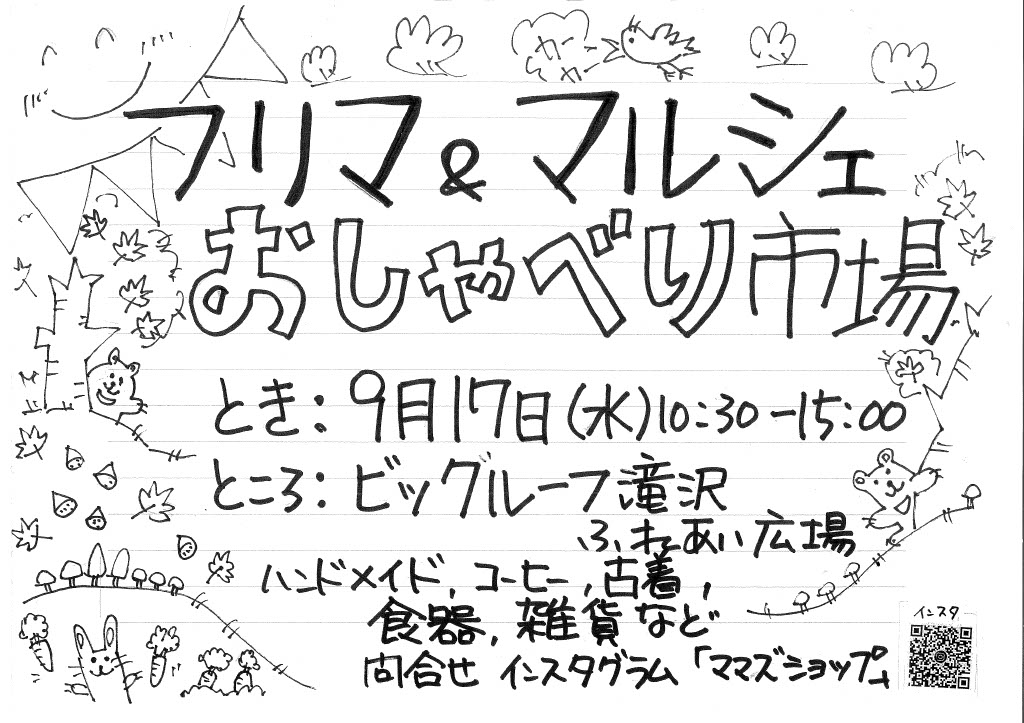 フリマ&マルシェ
おしゃべり市場
とき:9月17日(水)10:30-15:00
ところ:ビッグルーフ滝沢
ふれあい広場
ハンドメイド,コーヒー,古着,
食器,雑貨など
問合せ インスタグラム「ママズショップ」
インスタ